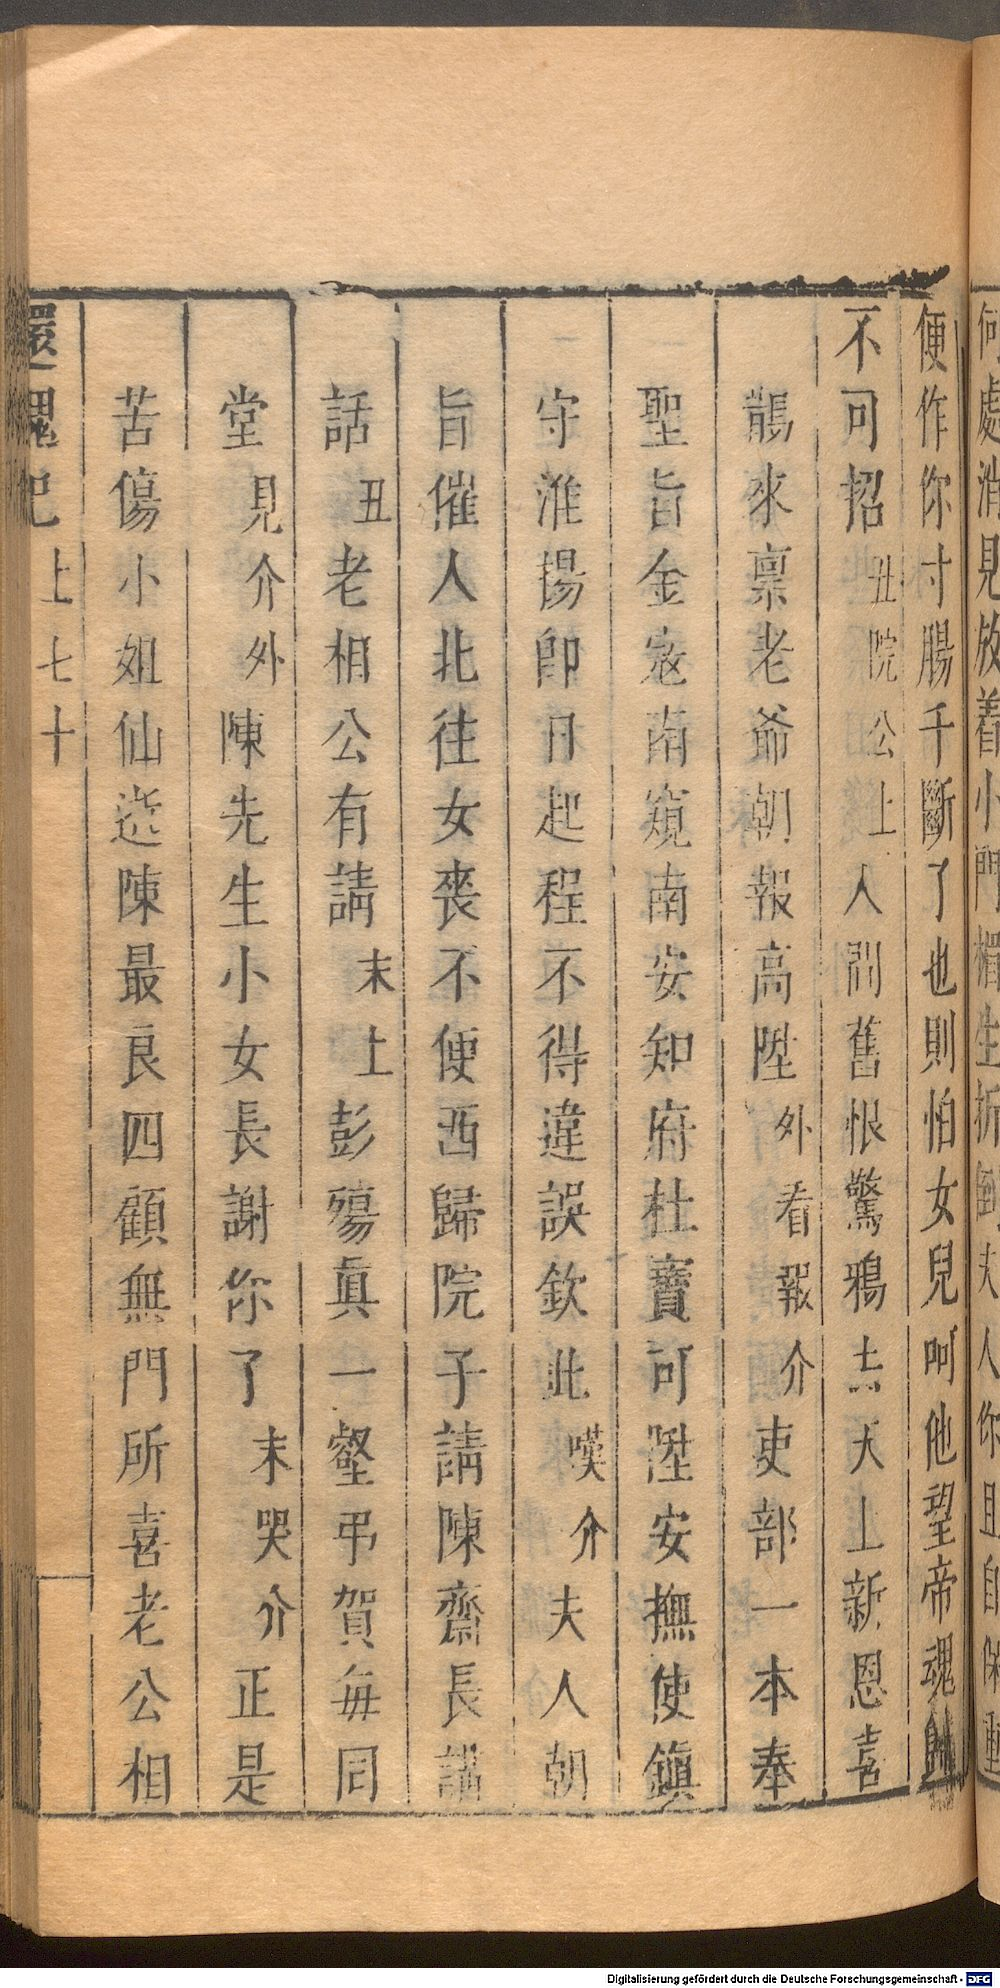 何處消見放着小門楣生折倒夫人你且自保重
便作你寸腸千斷了也則怕女兒呵他望帝魂
不可招丑院公上人間舊恨驚鴉去天上新恩喜
鵲來稟老爺朝報高陞外看報介吏部一本奉
聖旨金寇南窺南安知府杜寶可陞安撫使鎮
守淮揚即日起程不得違誤欽此嘆介夫人朝
旨催人北往女喪不便西歸院子請陳齋長講
話丑老相公有請末上彭殤眞一壑弔賀每同
堂見介外陳先生小女長謝你了末哭介正是
苦傷小姐仙逝陳最良四顧無門所喜老公相
還魂記上七十
Digitalisierung gefördert durch die Deutsche Forschungsgemeinschaft - DFG